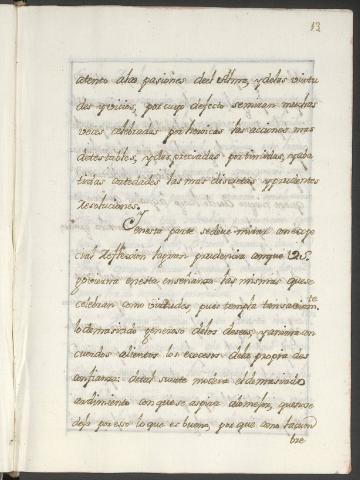 13
atento alas pasiones del Alma, y delas virtu
des y vicios, por cuyo defecto se miran muchas
veces celebradas por heroicas las acciones mas
detestables, y despreciadas por timidas, y aba
tidas cortedades las mas discretas y prudentes
resoluciones.
En esta parte se deve mirar con espe
cial reflexion la gran prudencia con que
governara en esta enseñanza las mismas que se
celebran como virtudes, pues templa tan saviam.te
lo demasiado generoso de los deseos, y anima con
cuerdos alientos los excesos dela propia des
confianza: de tal suerte modera el demasiado
ardimiento con que se aspira alo mejor, que no se
deja por esso lo que es bueno, por que como la cum
bre